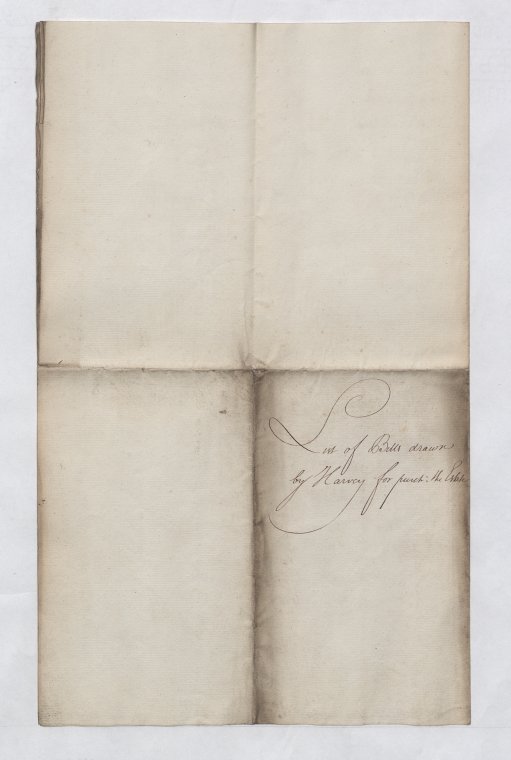 List of Bills drawn
by Harvey for purch: the Estate